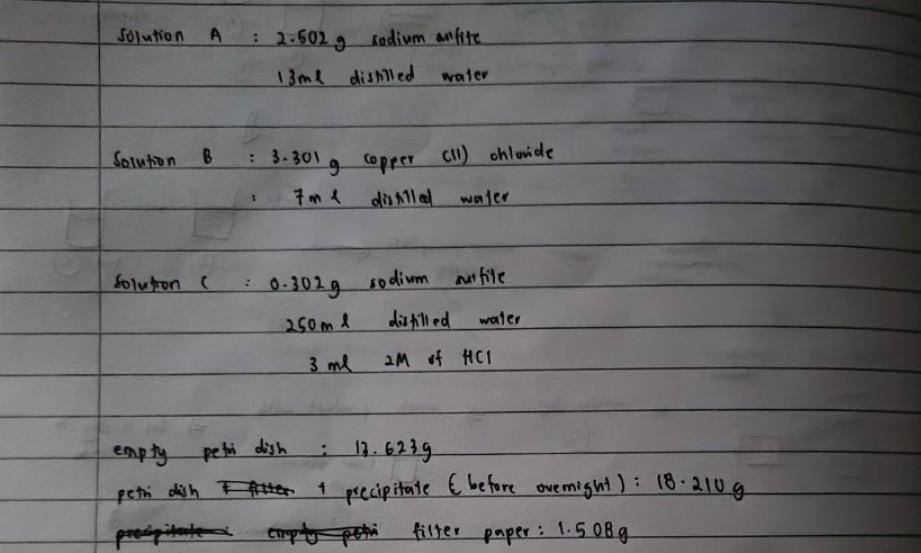 Solution A : 2.502 g sodium sulfite
13ml distilled water
Solution B : 3.301 g copper (II) chloride
: 7ml distilled water
Solution C : 0.302g sodium sulfite
250ml distilled water
3 ml 2M of HCl
empty petri dish : 13.623g
petri dish + filter + precipitate (before overnight) : 18.210 g
precipitate : empty petri filter paper : 1.508g